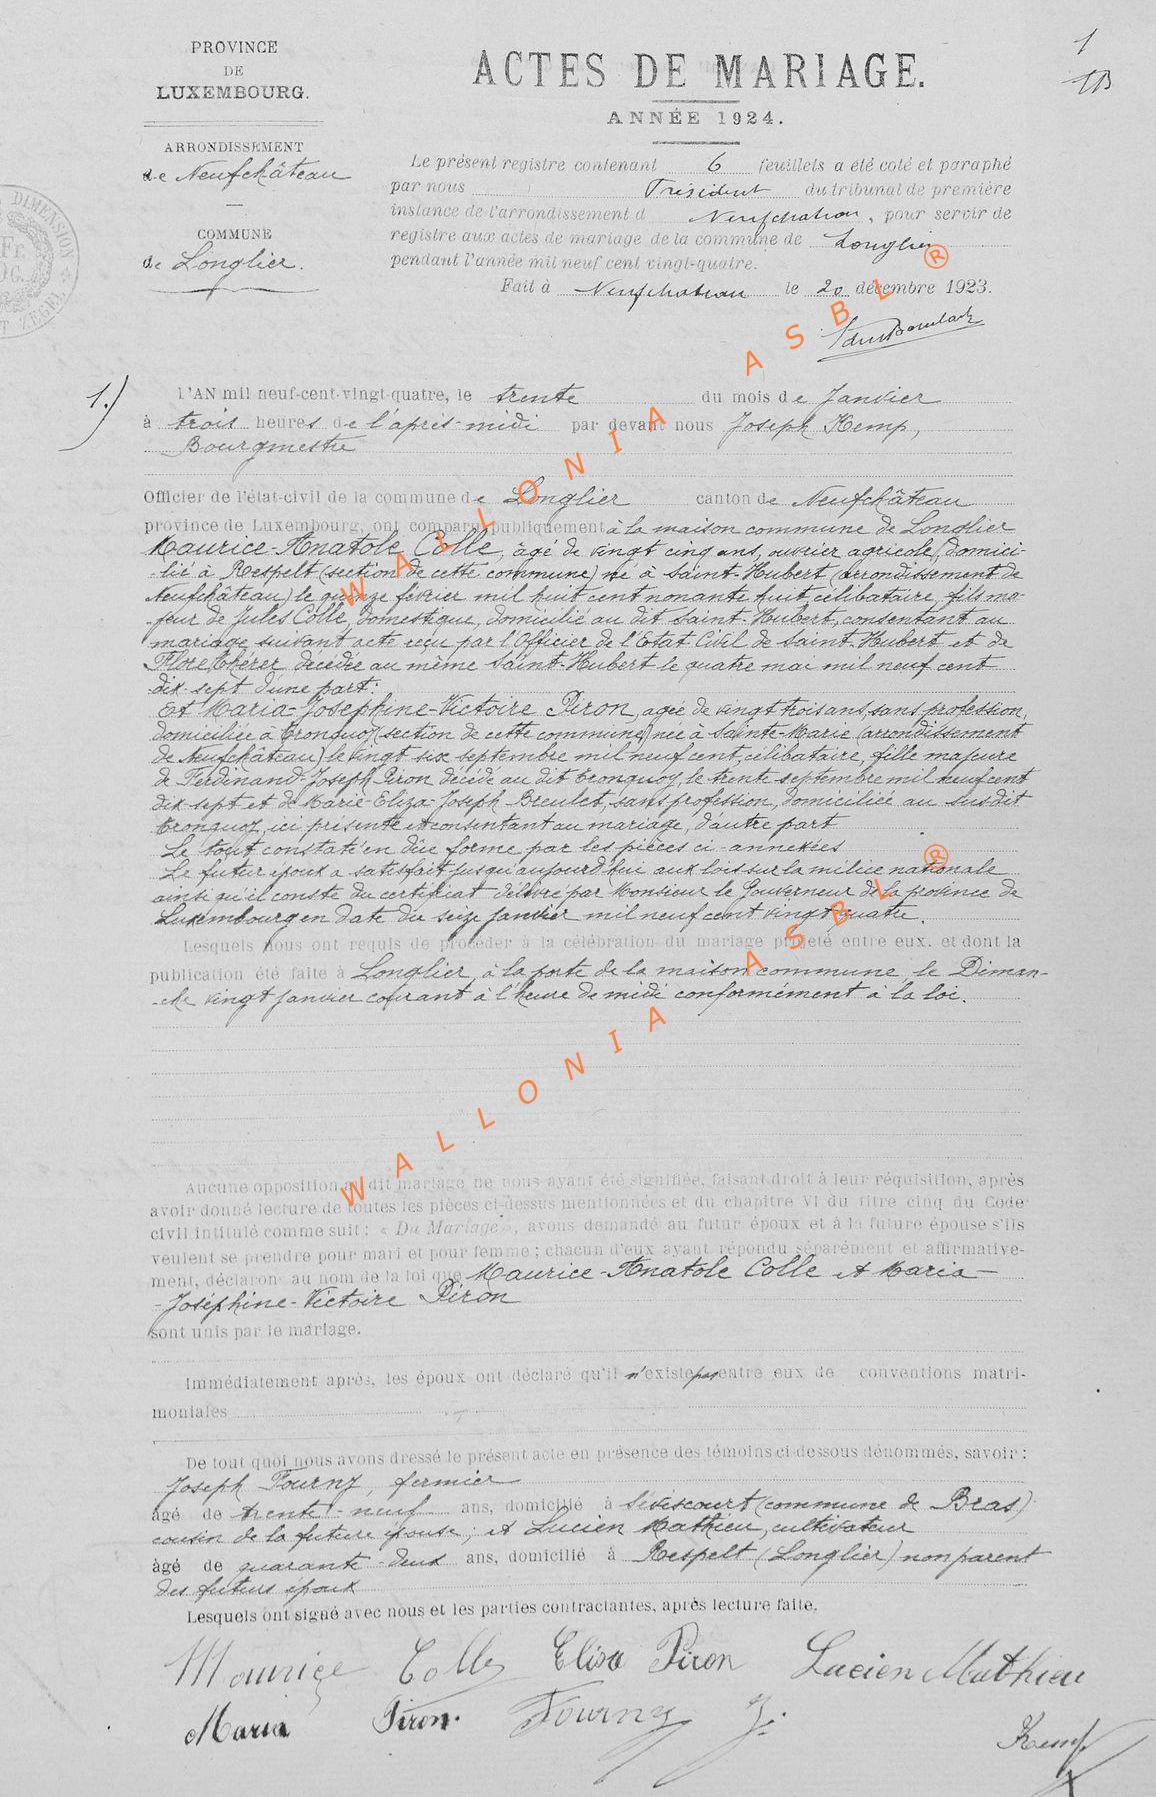 PROVINCE
DE
LUXEMBOURG.
ARRONDISSEMENT
de Neufchâteau
COMMUNE
de Longlier.
ACTES DE MARIAGE.
ANNÉE 1924.
1
Le présent registre contenant 6 feuillets a été coté et paraphé
par nous Président du tribunal de première
instance de l'arrondissement d Neufchateau, pour servir de
registre aux actes de mariage de la commune de Longlier
pendant l'année mil neuf cent vingt-quatre.
Fait à Neufchateau le 20 décembre 1923.
1.)
l'AN mil neuf-cent-vingt-quatre, le trente du mois de Janvier
à trois heures de l'après-midi par devant nous Joseph Kemp,
Bourgmestre
Officier de l'état-civil de la commune de Longlier canton de Neufchâteau
province de Luxembourg, ont comparu publiquement à la maison commune de Longlier
Maurice-Anatole Colle, âgé de vingt cinq ans, ouvrier agricole, domici-
-lié à Respelt (section de cette commune) né à Saint-Hubert (arrondissement de
Neufchâteau) le quinze février mil huit cent nonante huit, célibataire, fils ma-
-jeur de Jules Colle, domestique, domicilié au dit Saint-Hubert, consentant au
mariage suivant acte reçu par l'Officier de l'Etat Civil de Saint-Hubert et de
Flore Thérer décédée au même Saint-Hubert le quatre mai mil neuf cent
dix-sept d'une part:
Et Maria-Josephine-Victoire Piron, agée de vingt trois ans, sans profession,
domiciliée à Tronquoy (section de cette commune) née à Sainte-Marie (arrondissement
de Neufchâteau) le vingt six septembre mil neuf cent, célibataire, fille majeure
de Ferdinand-Joseph Piron décédé au dit Tronquoy, le trente septembre mil neuf cent
dix sept et de Marie-Eliza-Joseph Breulet, sans profession, domiciliée au susdit
Tronquoy, ici présente et consentant au mariage, d'autre part
Le tout constaté en dûe forme par les pièces ci-annexées
Le futur époux a satisfait jusqu'aujourd'hui aux lois sur la milice nationale
ainsi qu'il conste du certificat délivré par Monsieur le Gouverneur de la province de
Luxembourg en date du seize janvier mil neuf cent vingt quatre.
Lesquels nous ont requis de procéder à la célébration du mariage projeté entre eux. et dont la
publication été faite à Longlier, à la porte de la maison commune, le Diman-
-che vingt janvier courant à l'heure de midi conformément à la loi.
Aucune opposition au dit mariage ne nous ayant été signifiée, faisant droit à leur réquisition, après
avoir donné lecture de toutes les pièces ci-dessus mentionnées et du chapitre VI du titre cinq du Code
civil intitulé comme suit : « Du Mariage », avons demandé au futur époux et à la future épouse s'ils
veulent se prendre pour mari et pour femme ; chacun d'eux ayant répondu séparément et affirmative-
ment, déclarons au nom de la loi que Maurice-Anatole Colle et Maria-
-Joséphine-Victoire Piron
sont unis par le mariage.
Immédiatement après, les époux ont déclaré qu'il n'existe pas entre eux de conventions matri-
moniales
De tout quoi nous avons dressé le présent acte en présence des témoins ci-dessous dénommés, savoir :
Joseph Fourny, fermier
âgé de trente-neuf ans, domicilié à Séviscourt (commune de Bras)
cousin de la future épouse; et Lucien Mathieu, cultivateur
âgé de quarante-deux ans, domicilié à Respelt (Longlier) non parent
des futurs époux
Lesquels ont signé avec nous et les parties contractantes, après lecture faite.
Maurice Colle Elisa Piron Lucien Mathieu
Maria Piron. Fourny J.
Kemp
WALLONIA ASBL ®
WALLONIA ASBL ®